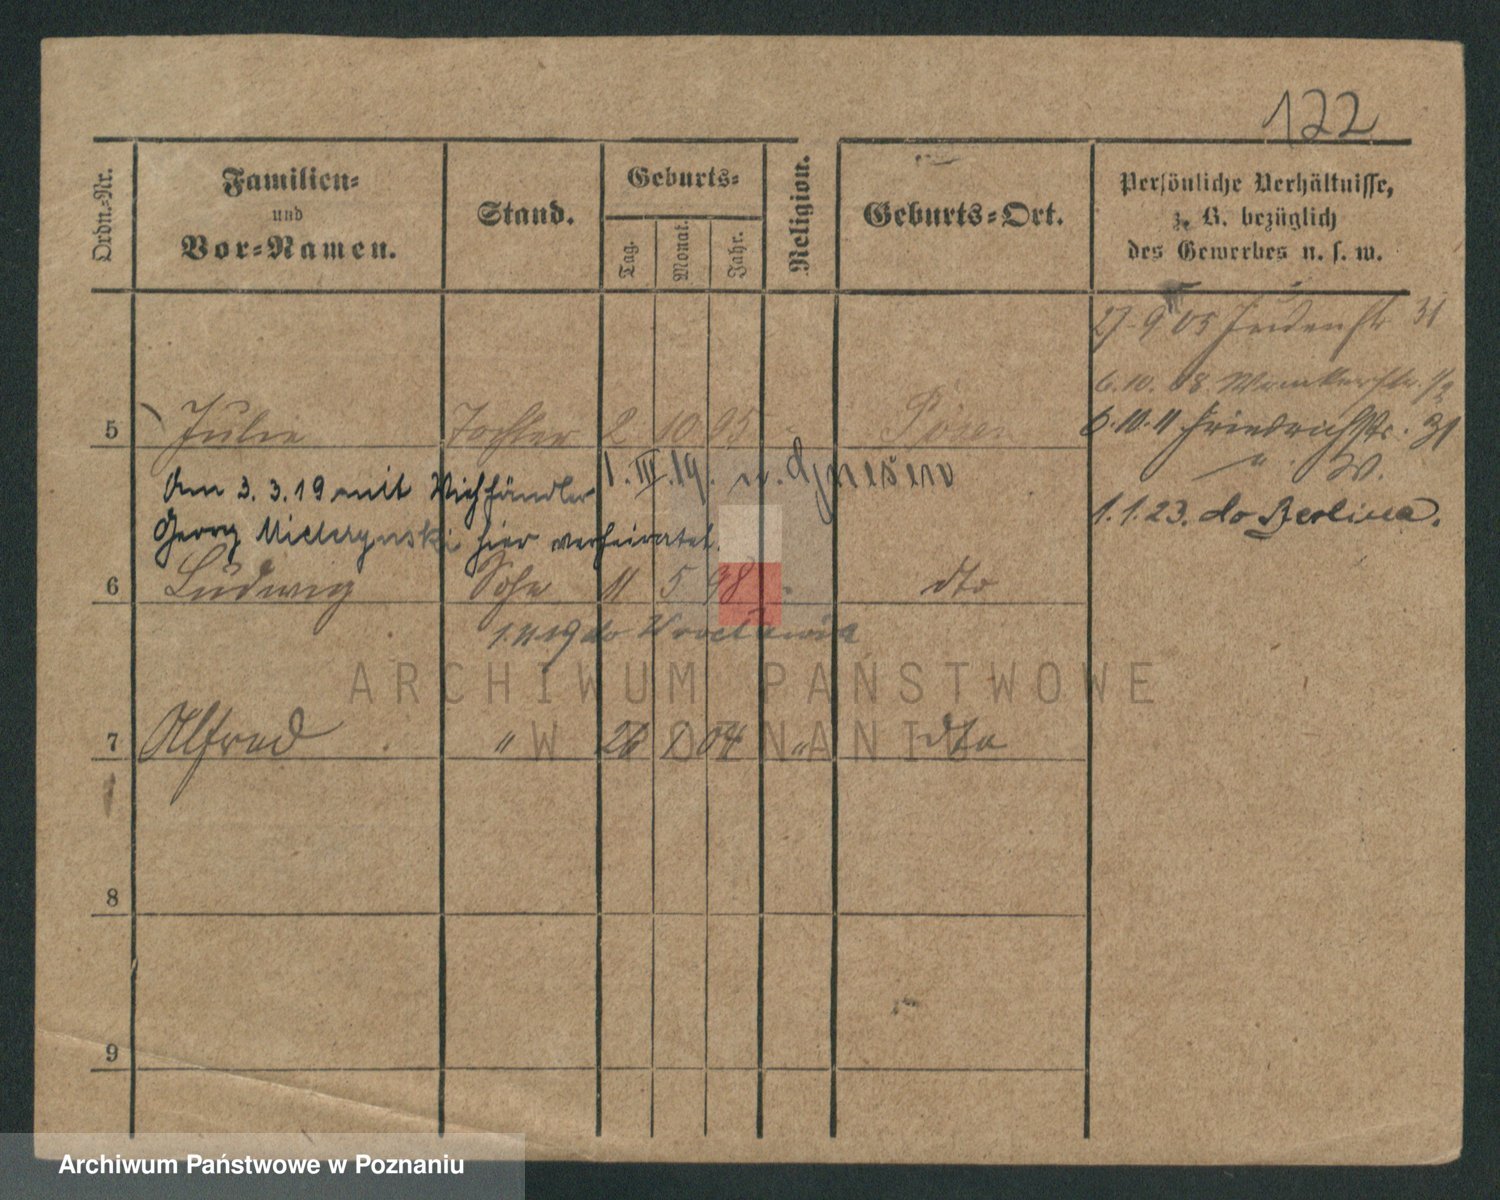 122
Ordn.-Nr.
Familien-
und
Vor-Namen.
Stand.
Geburts-
Tag.
Monat.
Jahr.
Religion.
Geburts-Ort.
Persönliche Verhältnisse,
z. B. bezüglich
des Gewerbes u. s. w.
27. 9 05 Judenstr 31
6. 10. 08.
5 Julie Tochter 2 10 95 - Posen
6. 10. 11 Friedrichstr. 31
Am 3. 3. 19 mit Viehhändler 1. III. 19. n. Gnesen
1. 1. 23. do Berlina.
Georg hier verheiratet.
6 Ludwig Sohn 11 5 98 - dto
do Wrocławia
ARCHIWUM PAŃSTWOWE
W POZNANIU
7 Alfred " 04 " dto
8
9
Archiwum Państwowe w Poznaniu